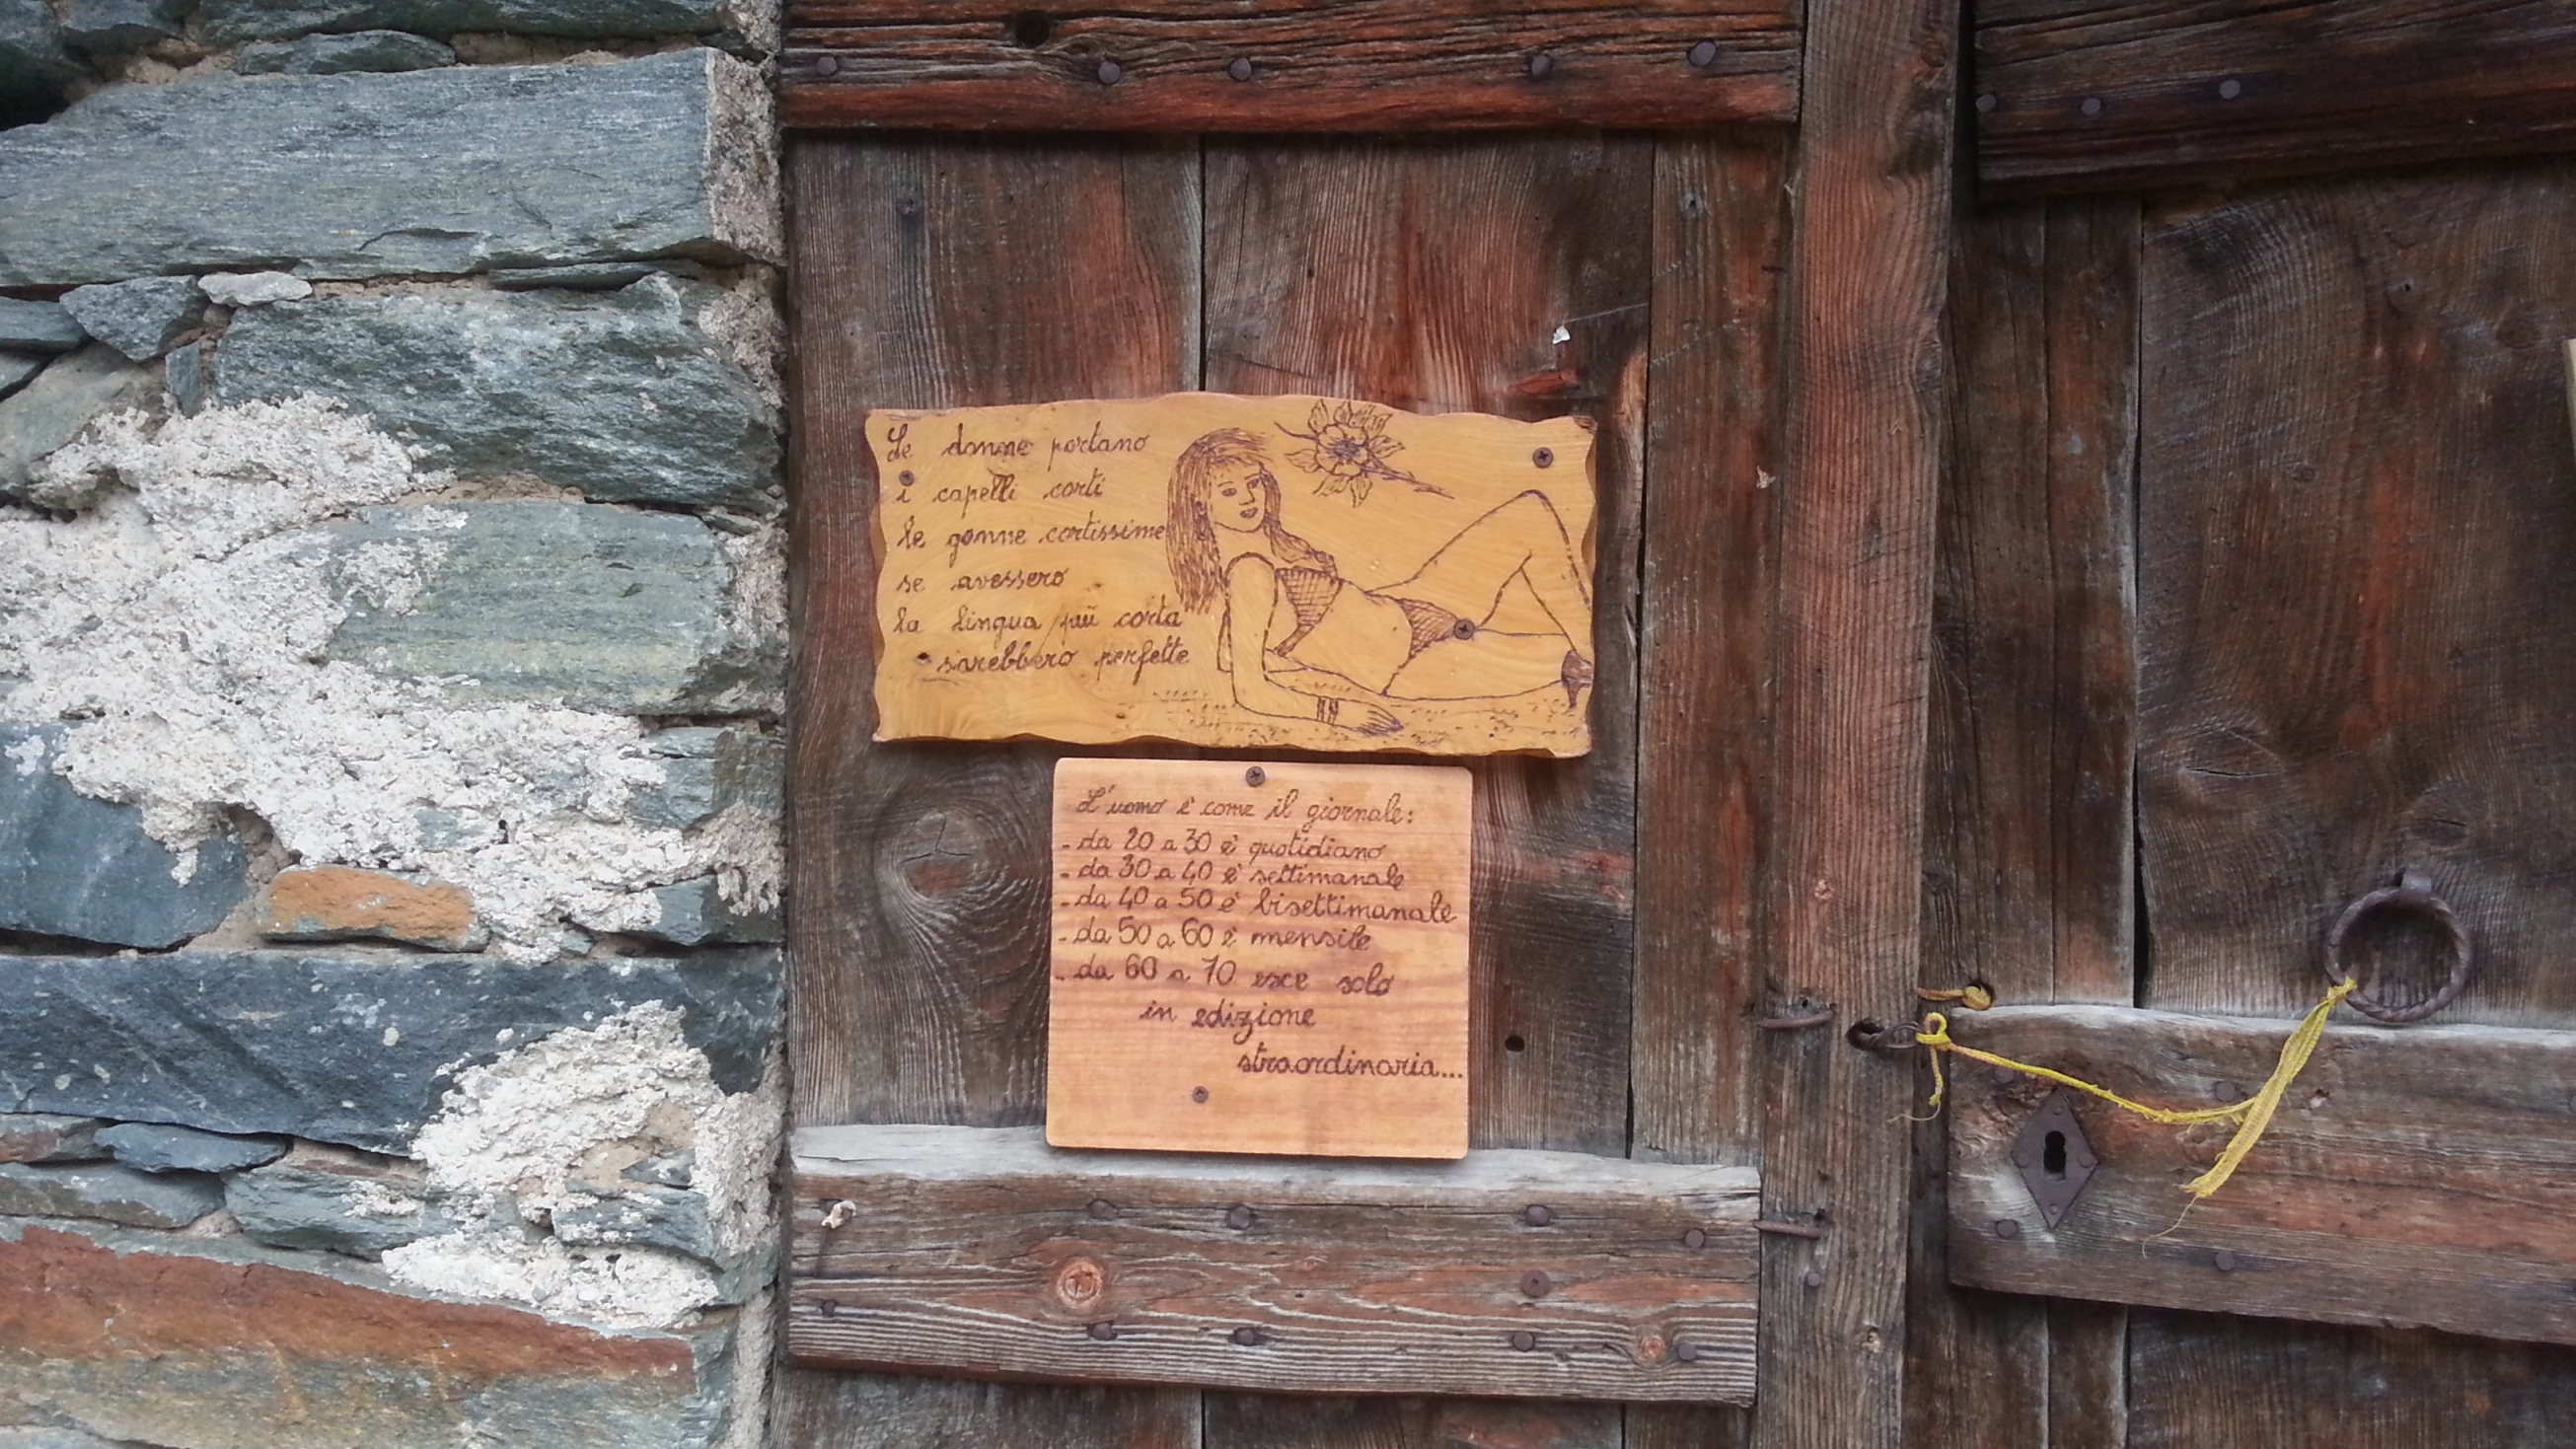 Le donne portano
i capelli corti
le gonne cortissime
se avessero
la lingua più corta
sarebbero perfette
L'uomo è come il giornale:
- da 20 a 30 è quotidiano
- da 30 a 40 è settimanale
- da 40 a 50 è bisettimanale
- da 50 a 60 è mensile
- da 60 a 70 esce solo
in edizione
straordinaria...